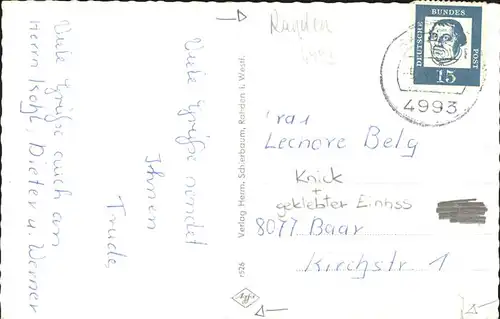 Viele Grüße sendet
Ihnen
Trude,
Viele Grüße auch an
Herrn
Dieter u. Werner
Verlag Herm. Schierbaum, Rahden i. Westf.
r526
Rahden
DEUTSCHE
BUNDES
POST
15
4993
Frau
Leonore Belg
Knick
+
geklebter Einriss
8077 Baar
Kirchstr 1